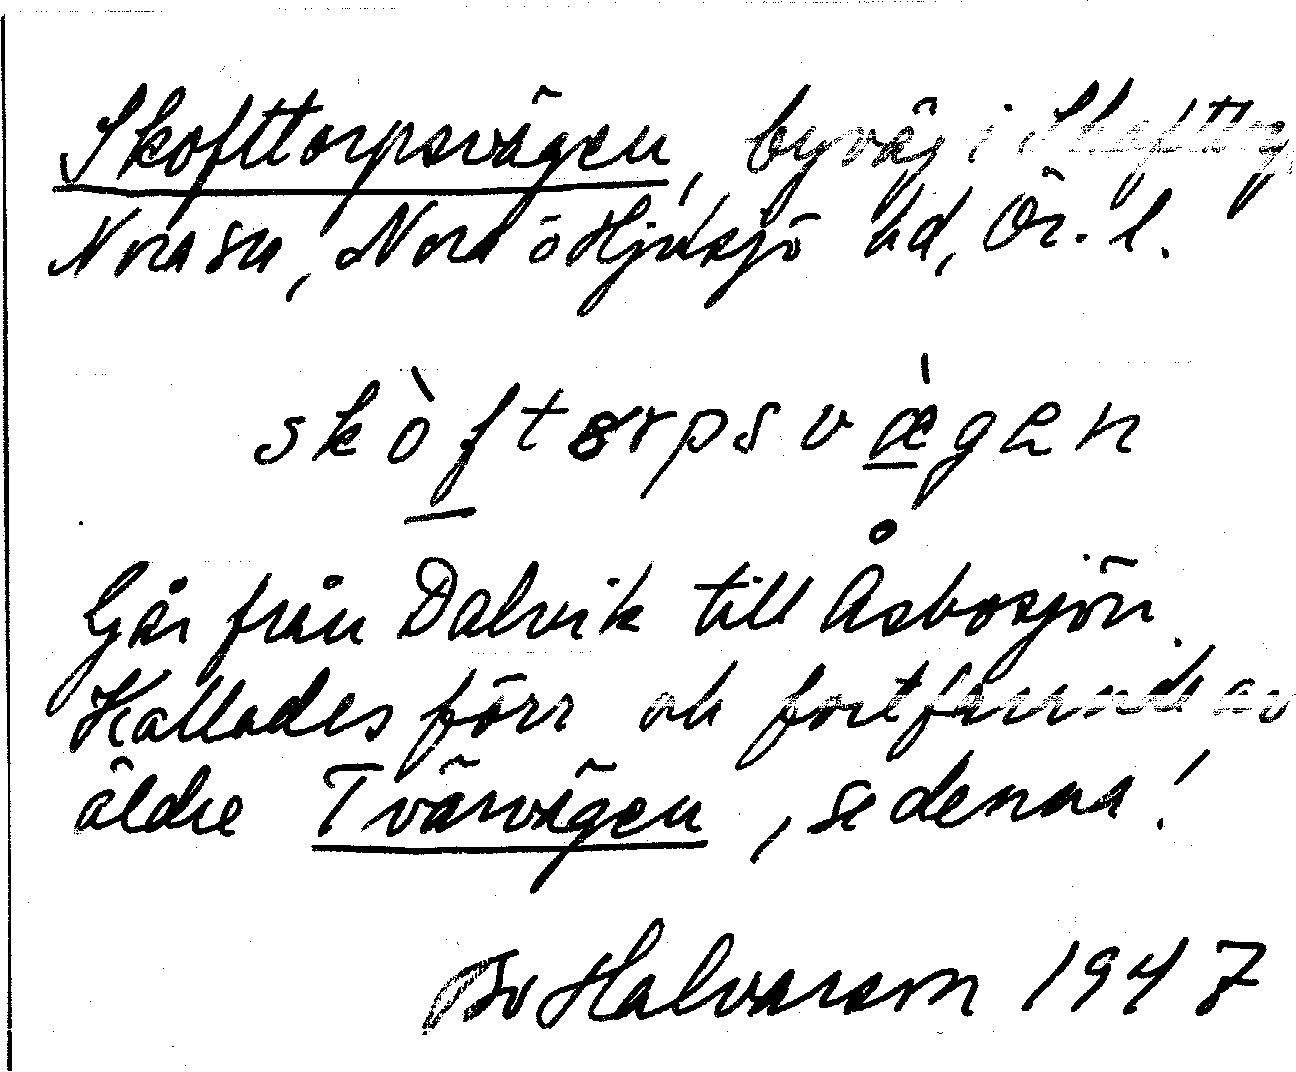 Skofttorpsvägen, byväg i Skofttorp
Nora sn, Nora o Hjulsjö hd, Ör. l.
skòftorpsvæ̀gen
Går från Dalvik till Åsbosjön.
Kallades förr och fortfarande av
äldre Tvärvägen, se denna!
Bo Halvarson 1947